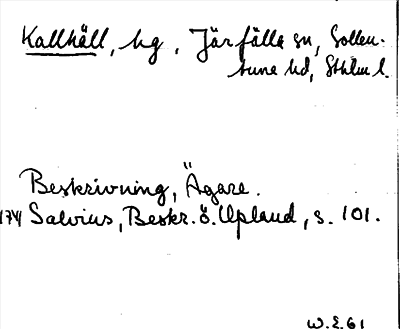 Kallhäll, hg, Järfälla sn, Sollen-
tuna hd, Sthlm l.
Beskrivning, Ägare.
1741 Salvius, Beskr. ö. Upland, s. 101.
W.E. 61